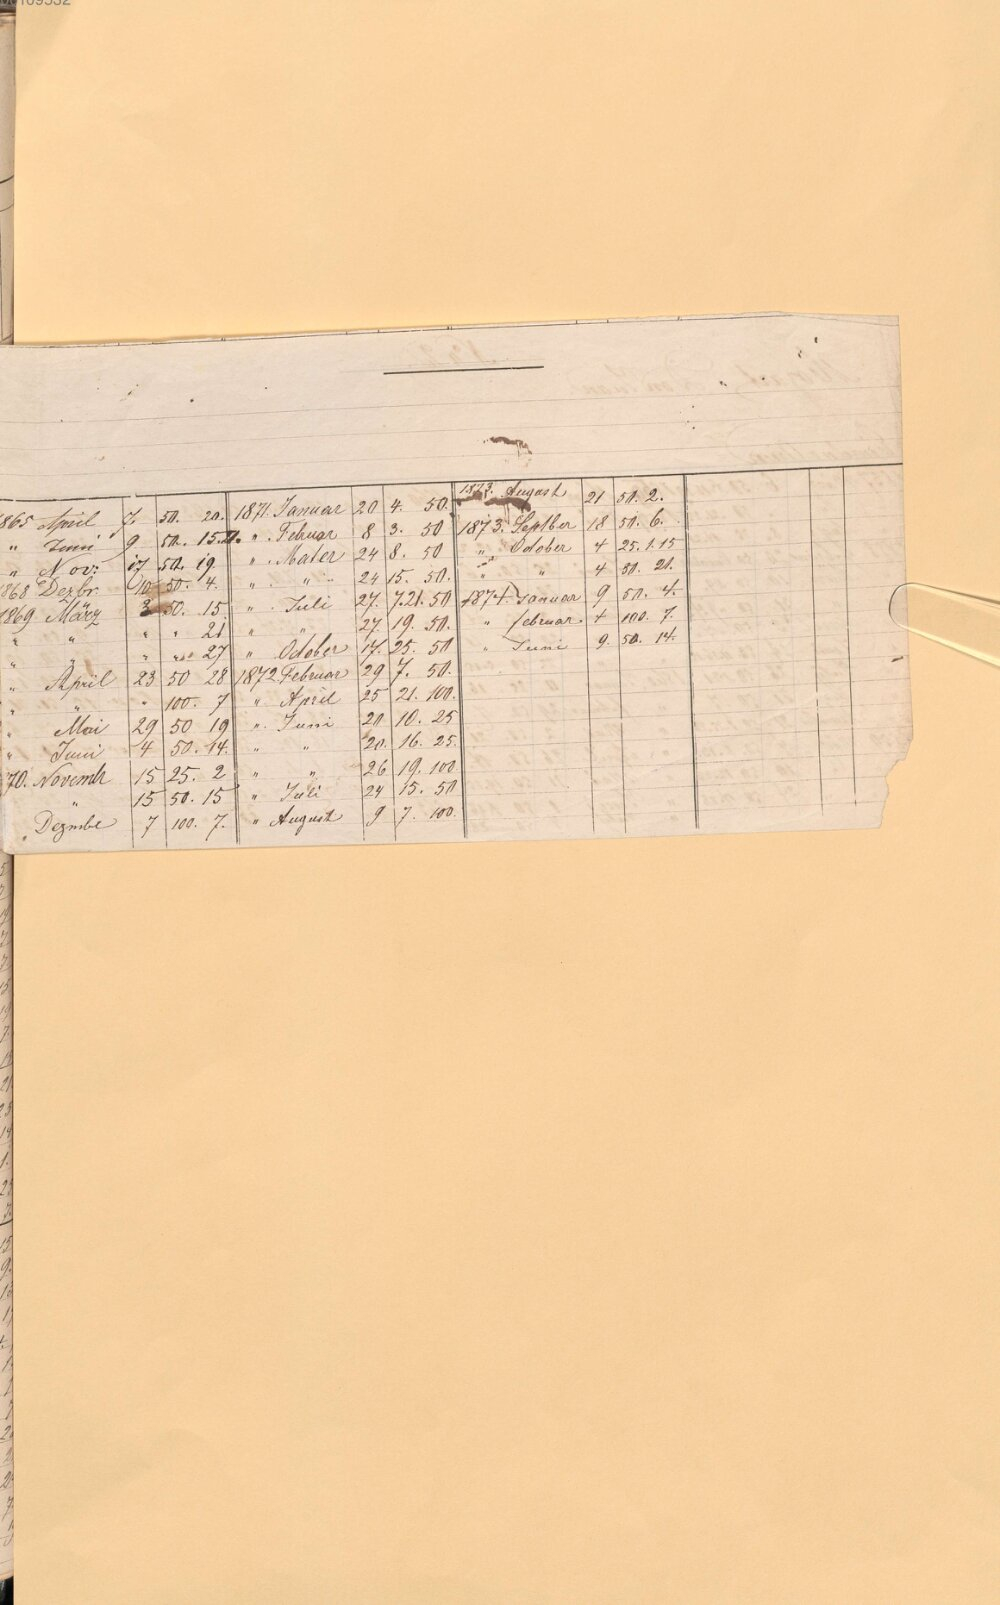 1865 April 7. 50. 20.
" Juni 9 50. 15.21.
" Nov: 17 50. 19.
1868 Dezbr. 10 50. 4.
1869 März 3 50. 15
" " " " 21
" " " " 27
" April 23 50 28
" " " 100. 7
" Mai 29 50 19
" Juni 4 50. 14.
70. Novembr 15 25. 2
" 15 50. 15
" Dezmbe 7 100. 7.
1871. Januar 20 4. 50.
" Februar 8 3. 50
" 24 8. 50
" " 24 15. 50.
" Juli 27. 7.21. 50
" " 27 19. 50.
" October 17. 25. 50
1872 Februar 29 7. 50.
" April 25 21. 100.
" Juni 20 10. 25
" " 20. 16. 25.
" " 26 19. 100
" Juli 24 15. 50
" August 9 7. 100.
1873. August 21 50. 2.
1873. Septber 18 50. 6.
" October 4 25. 1.15
" " 4 50. 21.
1874. Januar 9 50. 4.
" februar 4 100. 7.
" Juni 9. 50. 14.